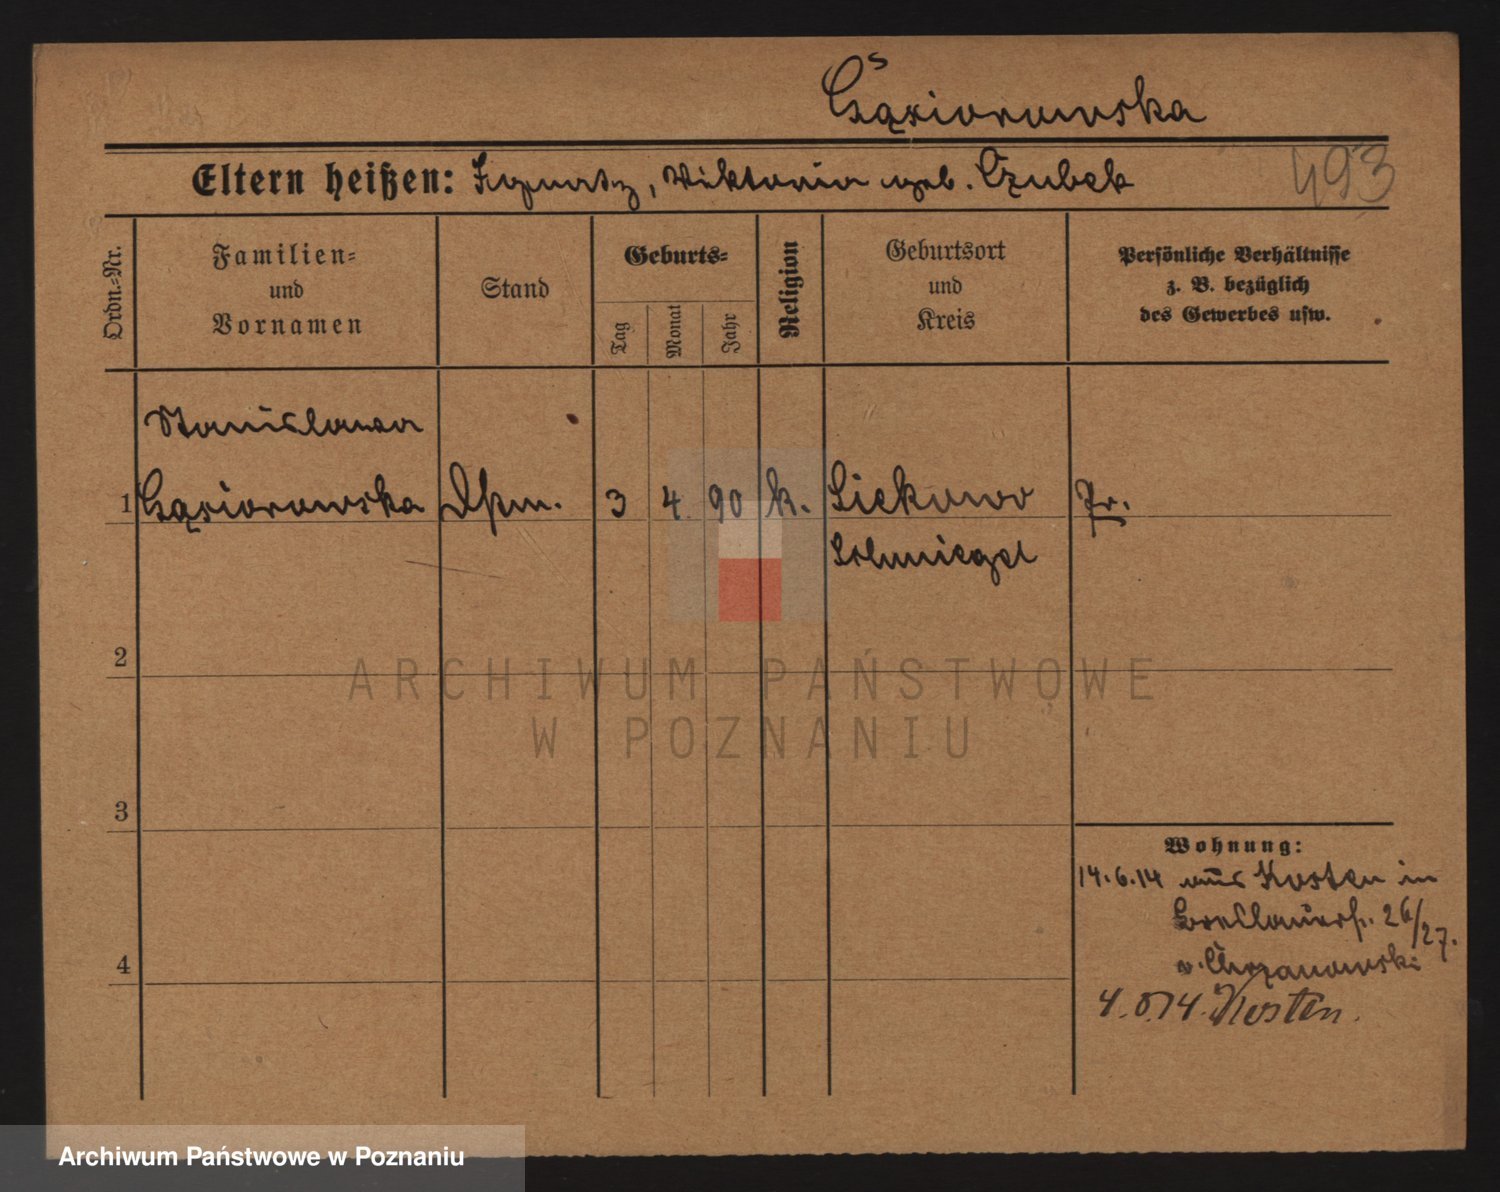 Gąsiorowska
Eltern heißen: Ignatz, Viktoria geb. Czubek
493
Ordn.=Nr.
Familien=
und
Vornamen
Stand
Geburts=
Tag
Monat
Jahr
Religion
Geburtsort
und
Kreis
Persönliche Verhältnisse
z. B. bezüglich
des Gewerbes usw.
Stanislawa
1 Gąsiorowska Dstm. 3 4. 90 k. Siekowo Pr.
Schmiegel
2
ARCHIWUM PAŃSTWOWE
W POZNANIU
3
Wohnung:
14.6.14 aus Kosten in
Breslauerstr. 26/27.
b. Chrzanowski
4
4.8.14. Kosten.
Archiwum Państwowe w Poznaniu